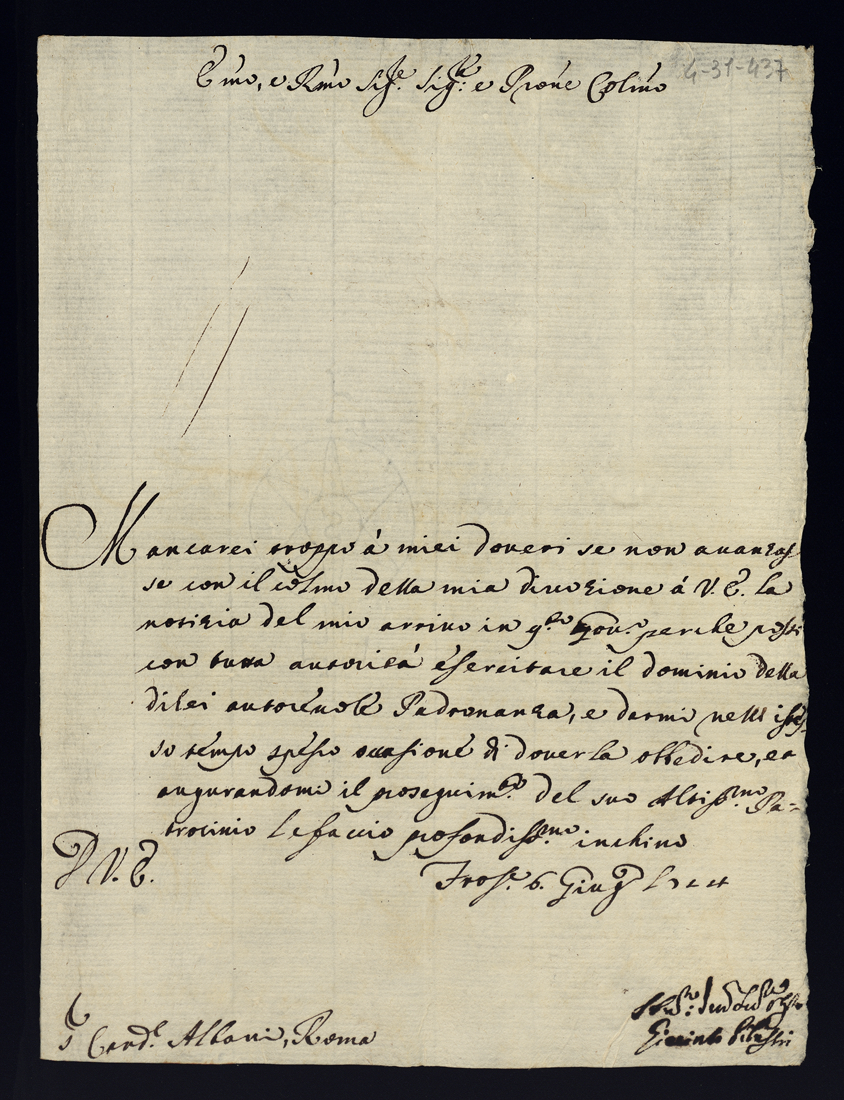 4-31-437
Emo, e Rmo Sig.e Sig.re e Prone Colmo
Mancarei troppo à miei doveri se non avanzas
se con il colmo della mia divozione à V. E. la
notizia del mio arrivo in q.sto Gov.o perche possi
con tutta autorità esercitare il dominio della
di lei autorevole Padronanza, e darmi nell istes-
so tempo spesso occasione di doverla obbedire, ed
augurandomi il proseguim.to del suo Altiss.mo Pa=
trocinio le faccio profondiss.mo inchino
D V. E.
Fros.e 6. Giug.o
Card.l Albani, Roma
Giacinto